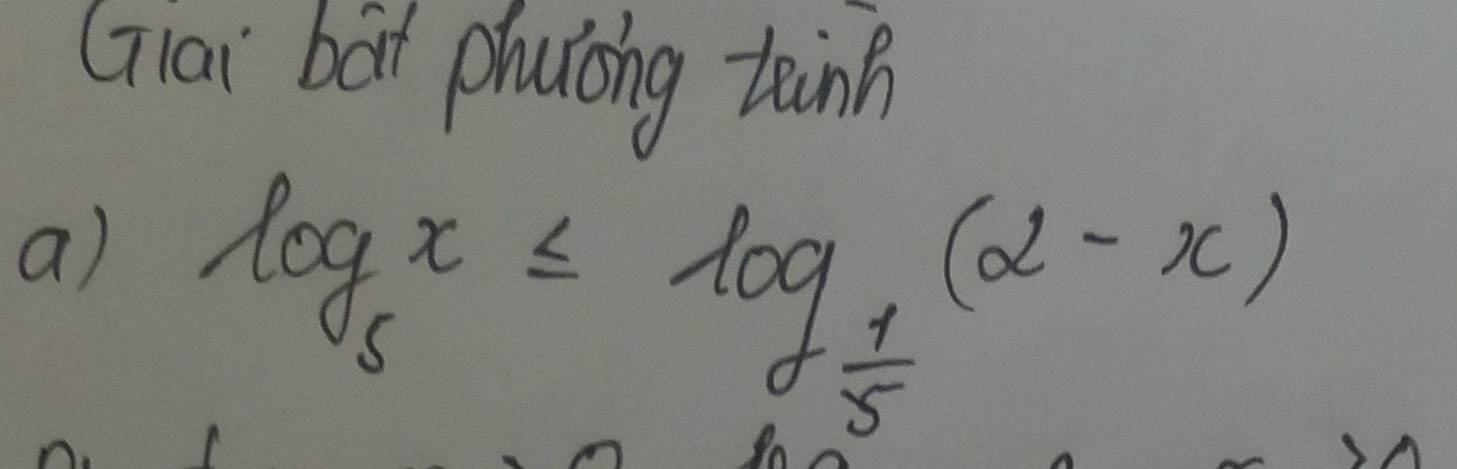 Giải bất phương trình
a) log_5 x ≤ log_{1/5} (2 - x)